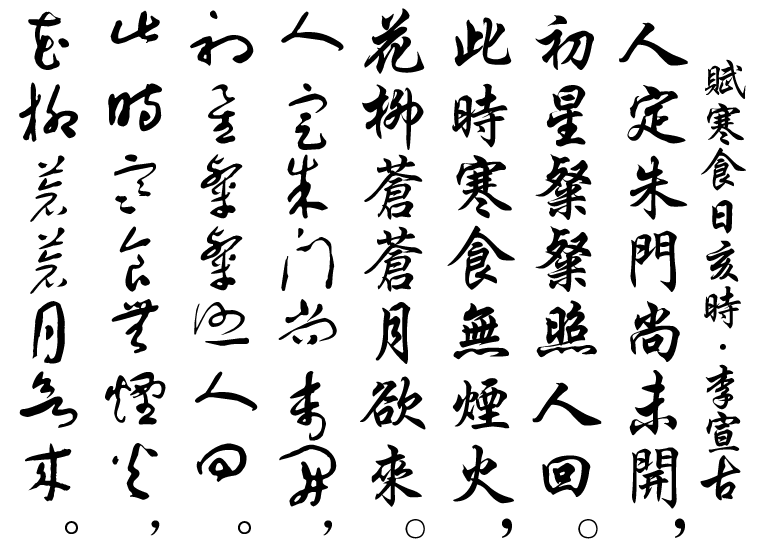 賦寒食日亥時·李宣古
人定朱門尚未開，
初星粲粲照人回。
此時寒食無煙火，
花柳蒼蒼月欲來。
人定朱門尚未開，
初星粲粲照人回。
此時寒食無煙火，
花柳蒼蒼月欲來。